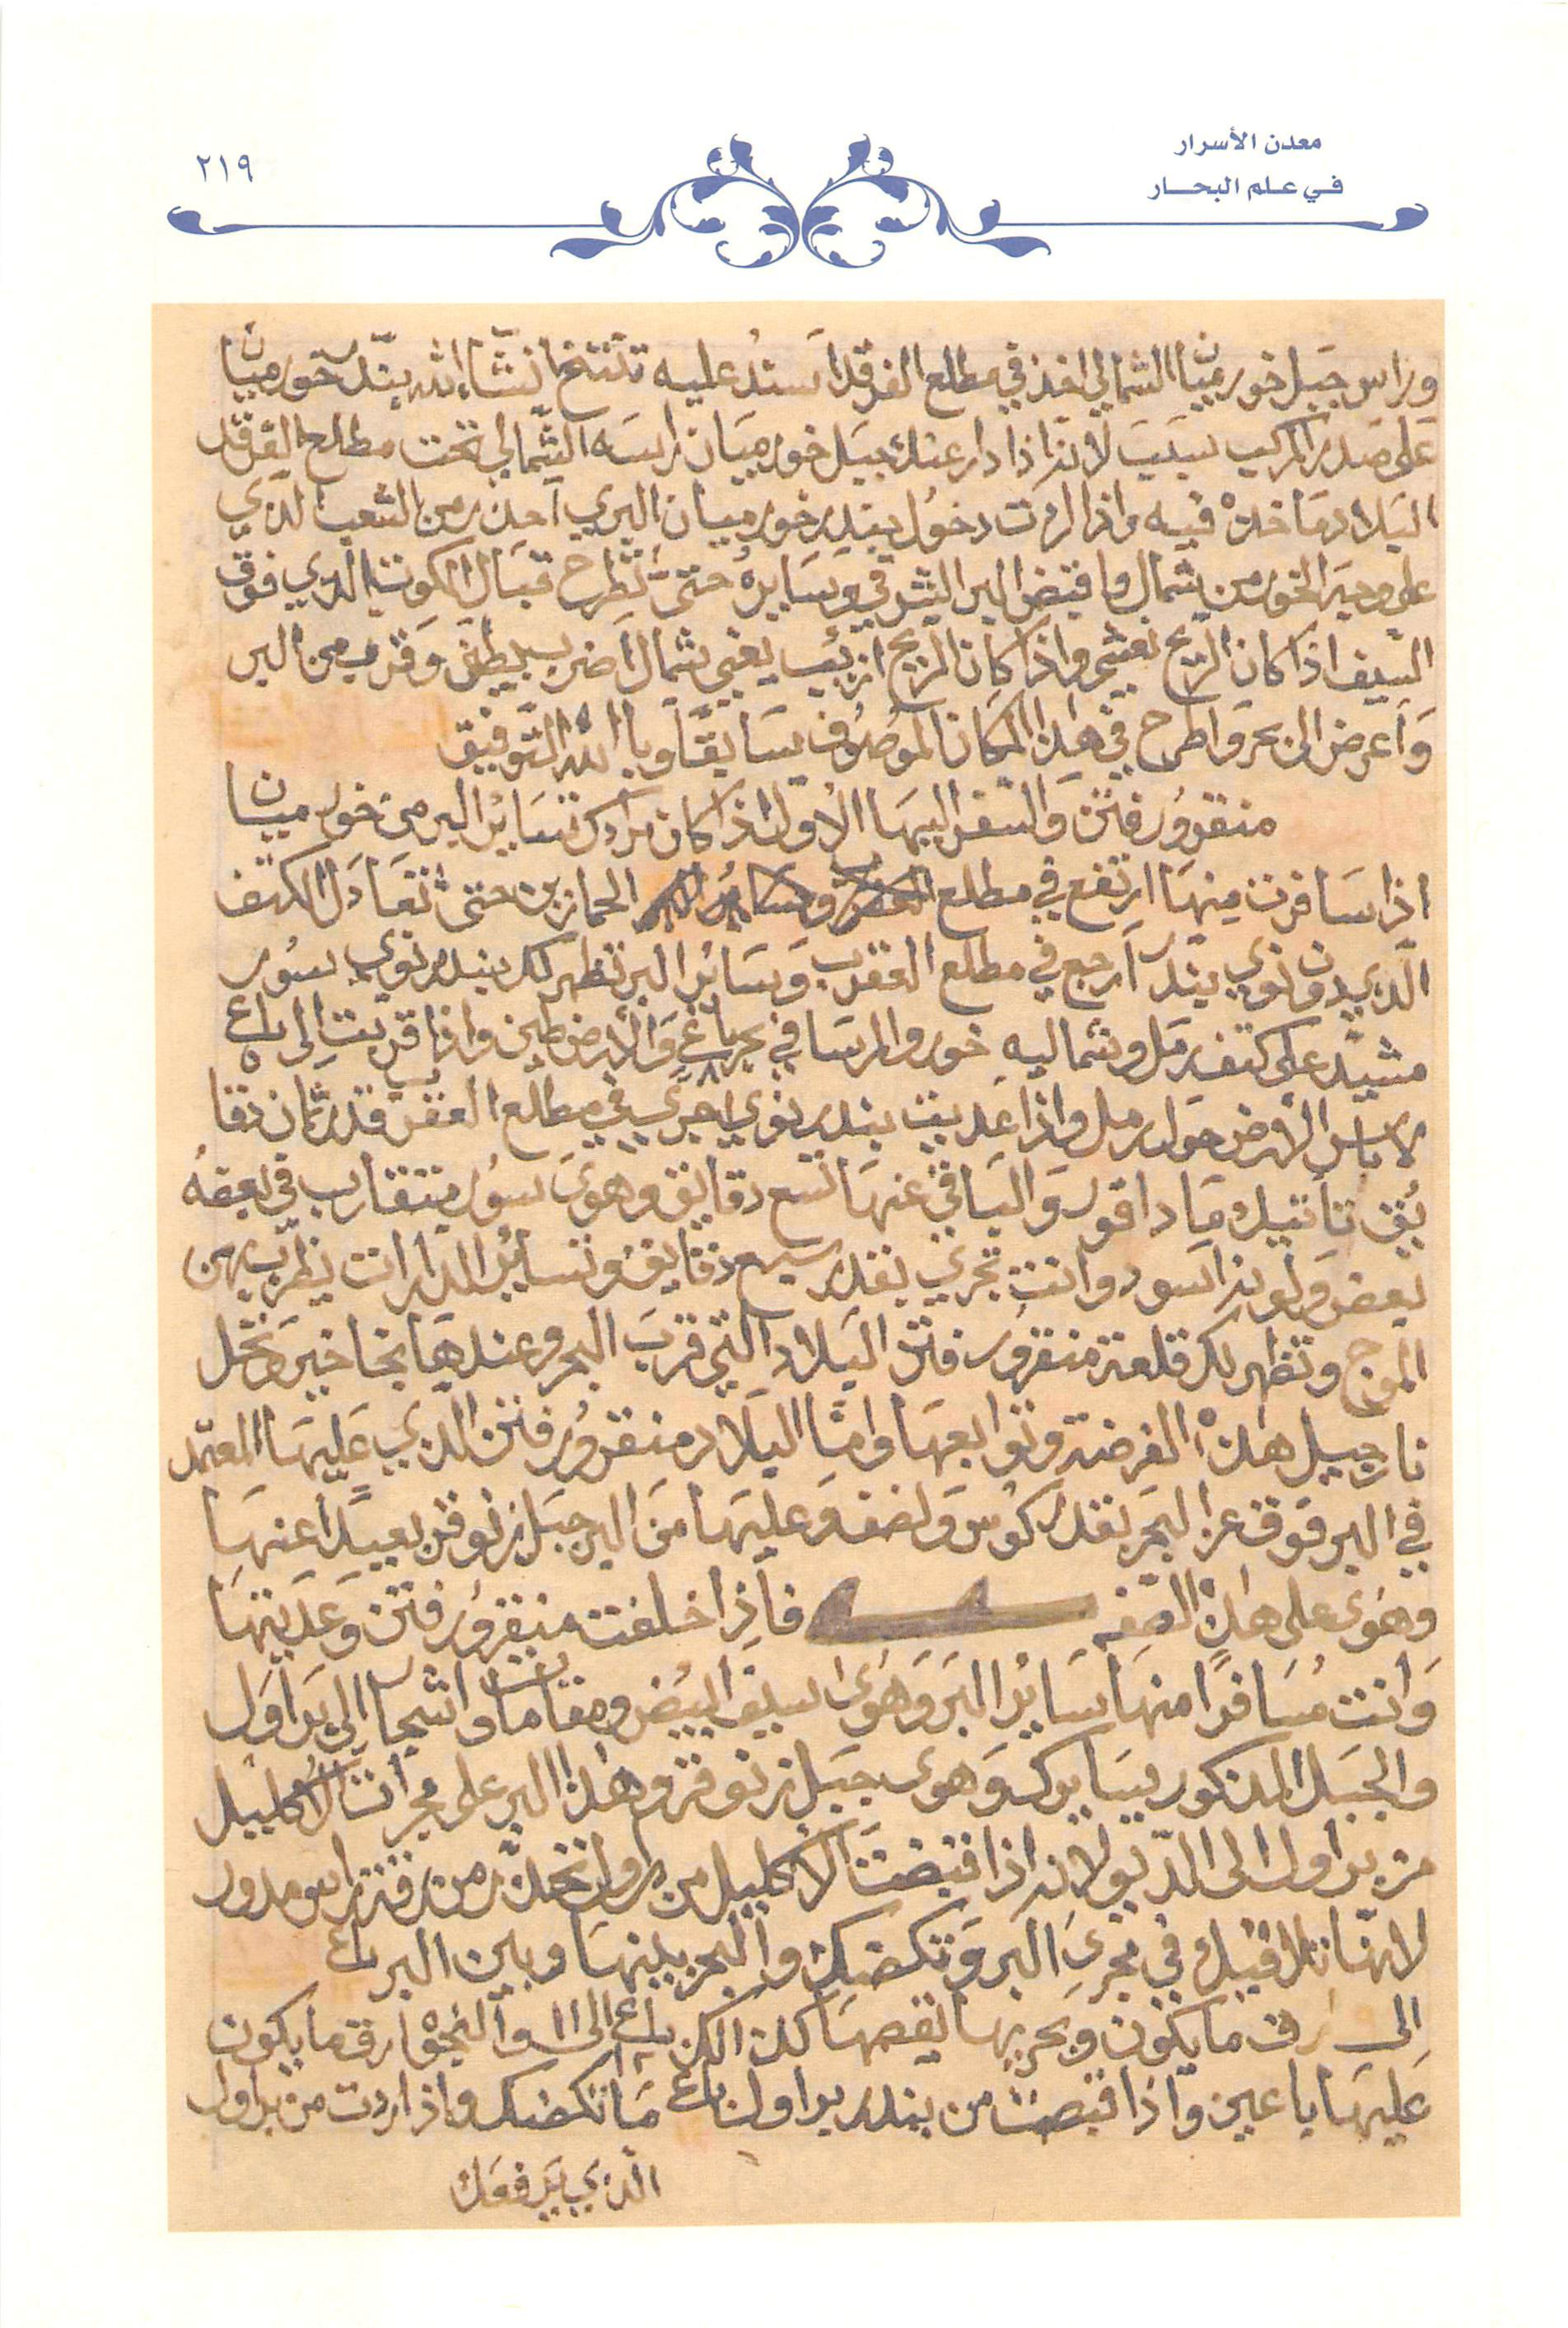 معدن الأسرار
في علم البحار
٢١٩
وراس جبل خور ميان الشمالي اخذ في مطلع الفرقد اسند عليه تنتخ انشاء الله بندر خور ميان
على صدر المركب سيب لانه اذا دار عنك جبل خور ميان راسه الشمالي تحت مطلع الفرقد
البلاد ماخذه فيه واذا اردت دخول بندر خور ميان البري احذر من الشعب الذي
على وجه الخور من شمال واقبض البر الشرقي وسايره حتى تطرح قبال الكوت الذي فوق
السيف اذا كان الريح نعشي واذا كان الريح ازيب يعني شمال اضرب بيطف وقرب من البر
وَاعرض الى بحر واطرح في هذا المكان الموصوف سابقًا وباالله التوفيق
منقرور فتن والسفر اليها الاول اذا كان مرادك تساير البر من خور ميان
اذا سافرت منها ارتفع في مطلع الحمارين حتى تتعادل الكتف
الذي دون نوي بندر ارجع في مطلع العقرب وساير البر تظهر لك بندر نوي سور
مشيد على كتف رمل وشماليه خور والمرسا في بحر باع ٨ والارض طين واذا قربت الى باع ٥
لا باس الارض حول رمل واذا عديت بندر نوي اجري في مطلع العقرب قدر ثمان دقا
يُق تاتيك مادا قور والباقي عنها تسع دقايق وهوى سور متقارب في بعضه
بعض ولونه اسود وانت تجري بقدر سبع دقايق وتساير المدارات يظرب بهن
الموج وتظهر لك قلعة منقرور فتن البلاد التي قرب البحر وعندها بخاخير ونخل
نارجيل هذه الفرضة وتوابعها وامّا البلاد منقرور فتن الذي عليها المعتمد
في البر فوق عن البحر بقدر كوس ونصف وعليها من البر جبل زنوفر بعيدًا عنها
وهوى على هذه الصفه فاذا خلفت منقرور فتن وعديتها
وانت مسافرًا منها ساير البر وهوى سيف ابيض ومقامات واشجار الى براول
والجبل المذكور يسايرك وهوى جبل زنوفر وهذا البر على مجراة الاكليل
من براول الى الديو لانه اذا قبضت الاكليل من براول تحذر من رقة راس مدور
لانها تلاقيك في مجرى البر وتكضك والبحر بينها وبين البر باع
الى ارق ما يكون وبحريها نقصها كذلك باع ١٢ الى ١١ والنجو ارق ما يكون
عليها باعين واذا قبضت من بندر براول باع ما تكضك واذا اردت من براول
الذي يرفعك